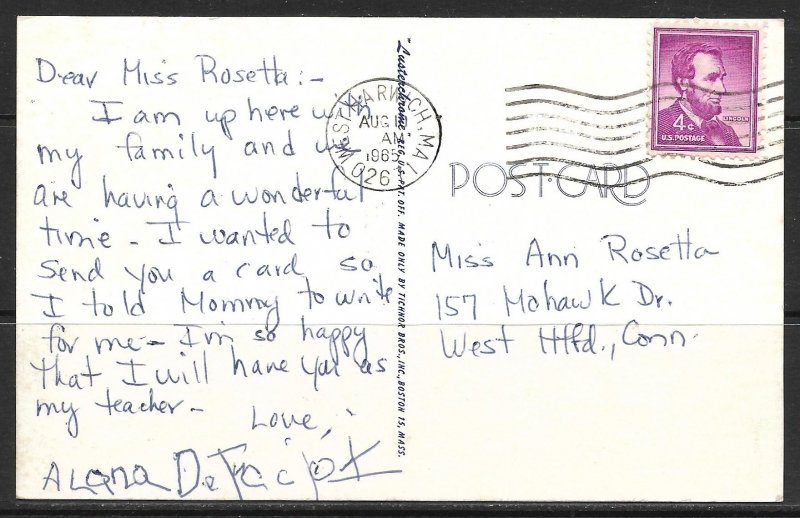 Dear Miss Rosetta:-
I am up here with
my family and we
are having a wonderful
time - I wanted to
send you a card so
I told Mommy to write
for me - I'm so happy
that I will have you as
my teacher -
Love,
ALANA
"Lusterchrome" REG. U.S. PAT. OFF. MADE ONLY BY TICHNOR BROS., INC., BOSTON 15, MASS.
WEST HARWICH, MA
AUG
AM
1965
026
LINCOLN
4¢
U.S. POSTAGE
POST-CARD
Miss Ann Rosetta
157 Mohawk Dr.
West Htfd., Conn.